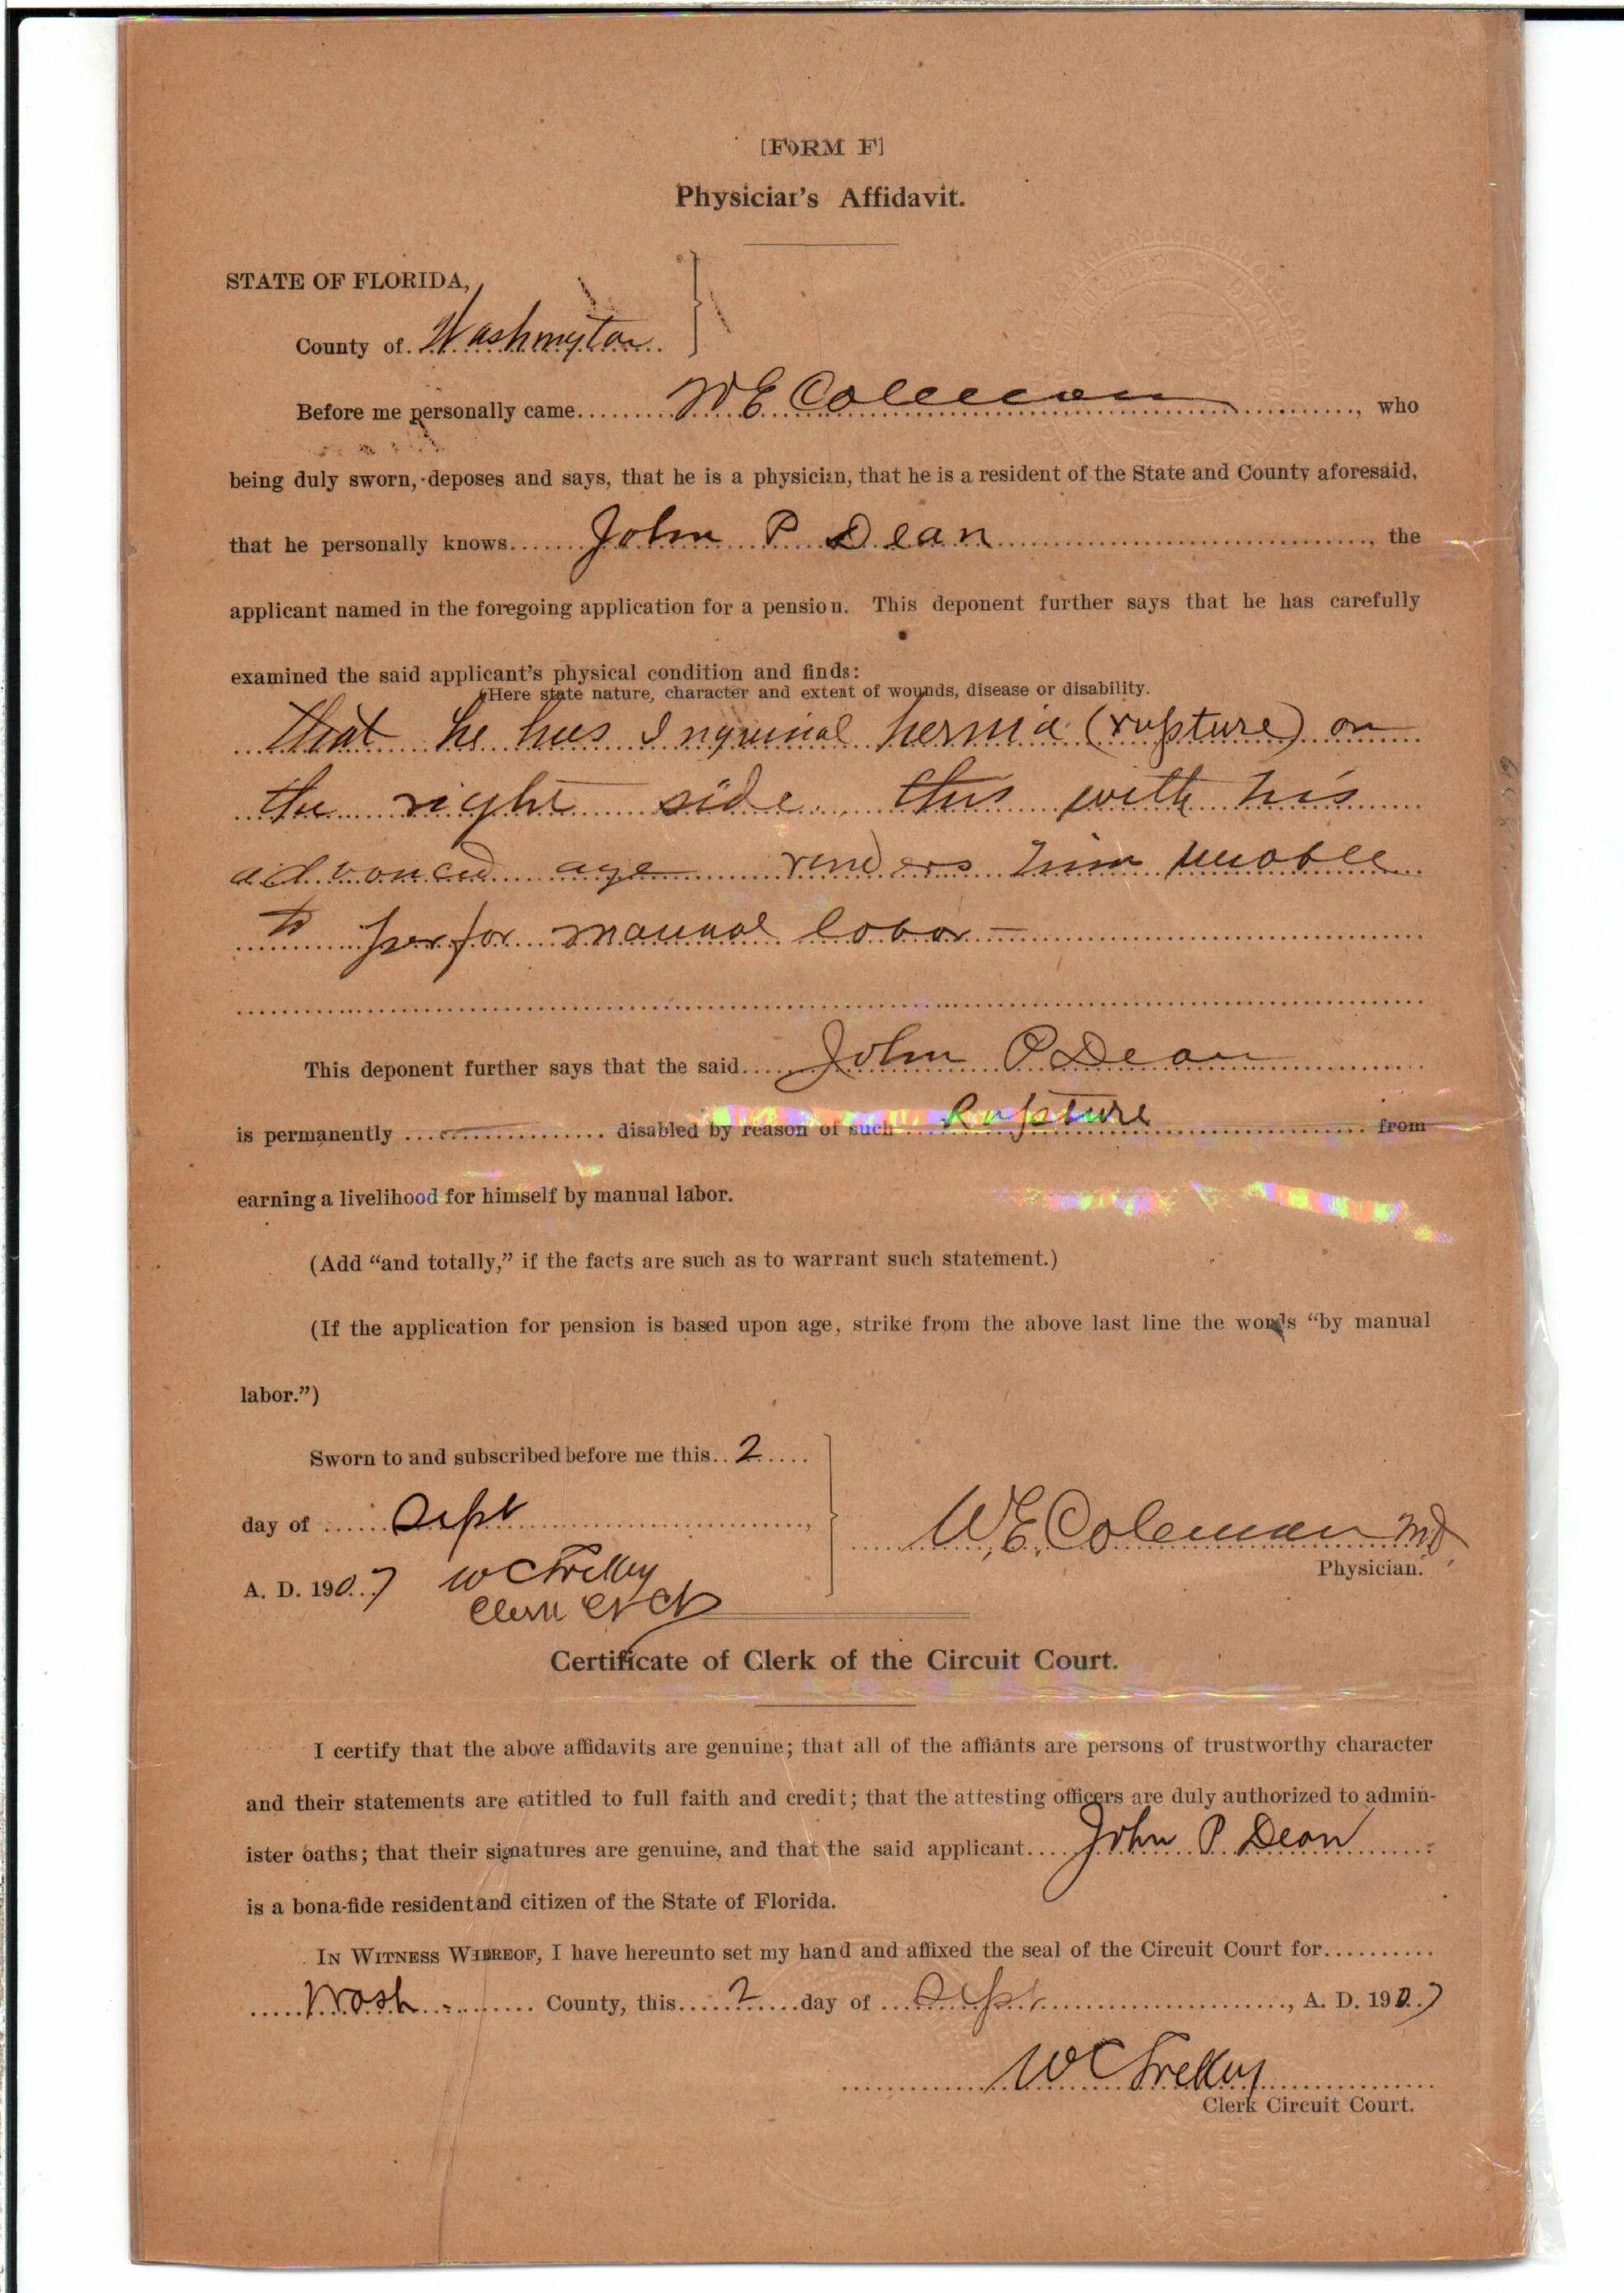 [FORM F]
Physician's Affidavit.
STATE OF FLORIDA,
County of Washington
Before me personally came W E Coleman, who
being duly sworn, deposes and says, that he is a physician, that he is a resident of the State and County aforesaid,
that he personally knows John P Dean, the
applicant named in the foregoing application for a pension. This deponent further says that he has carefully
examined the said applicant's physical condition and finds:
(Here state nature, character and extent of wounds, disease or disability.
that he has Inguinal hernia (rupture) on
the right side. this with his
advanced age renders him unable
to perfor manual labor —
This deponent further says that the said John P Dean
is permanently disabled by reason of such Rupture from
earning a livelihood for himself by manual labor.
(Add “and totally,” if the facts are such as to warrant such statement.)
(If the application for pension is based upon age, strike from the above last line the words “by manual
labor.”)
Sworn to and subscribed before me this 2
day of Sept,
A. D. 1907
W.E. Coleman MD
Physician.
Clerk
Certificate of Clerk of the Circuit Court.
I certify that the above affidavits are genuine; that all of the affiants are persons of trustworthy character
and their statements are entitled to full faith and credit; that the attesting officers are duly authorized to admin-
ister oaths; that their signatures are genuine, and that the said applicant John P Dean
is a bona-fide resident and citizen of the State of Florida.
IN WITNESS WHEREOF, I have hereunto set my hand and affixed the seal of the Circuit Court for
Wash County, this 2 day of Sept, A. D. 1907
W C
Clerk Circuit Court.